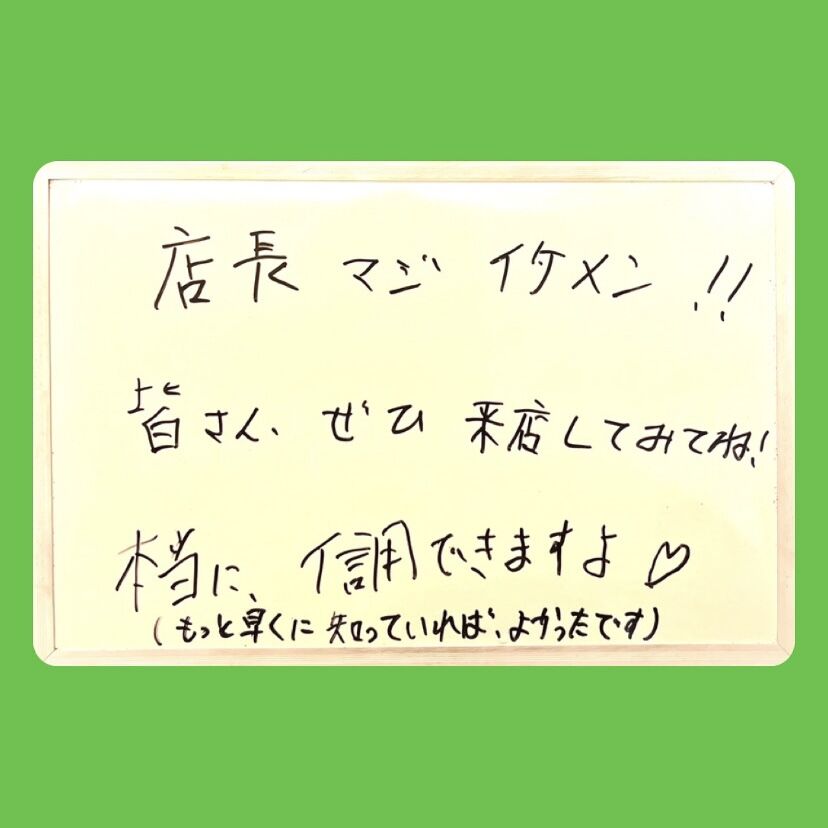 店長 マジ イケメン!!
皆さん、ぜひ 来店してみてね!
本当に、信用できますよ♡
(もっと早くに知っていれば、よかったです)